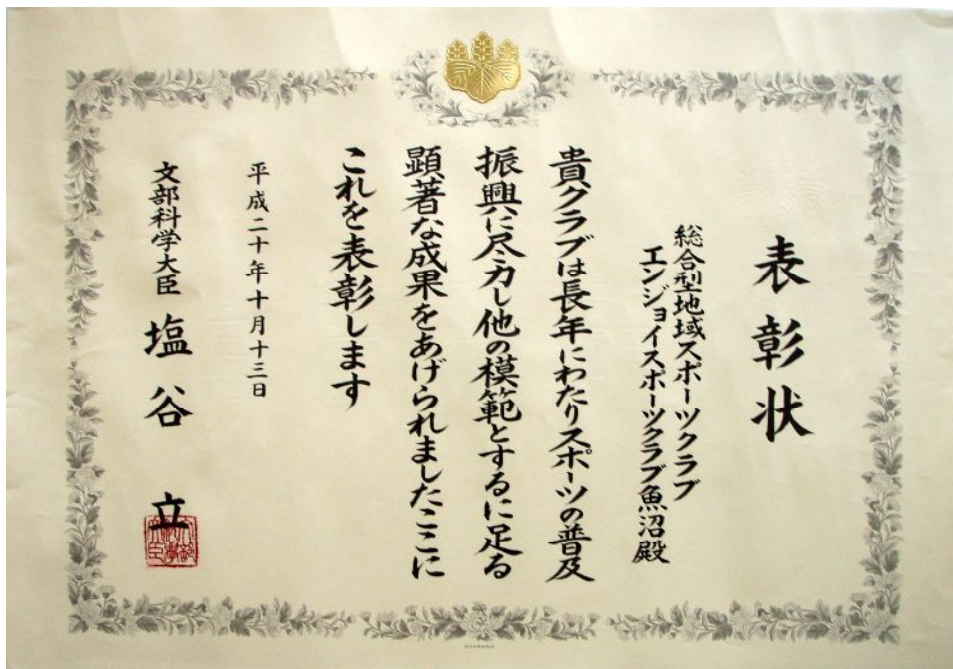 表彰状
総合型地域スポーツクラブ
エンジョイスポーツクラブ魚沼殿
貴クラブは長年にわたりスポーツの普及
振興に尽力し他の模範とするに足る
顕著な成果をあげられましたここに
これを表彰します
平成二十年十月十三日
文部科学大臣 塩谷 立